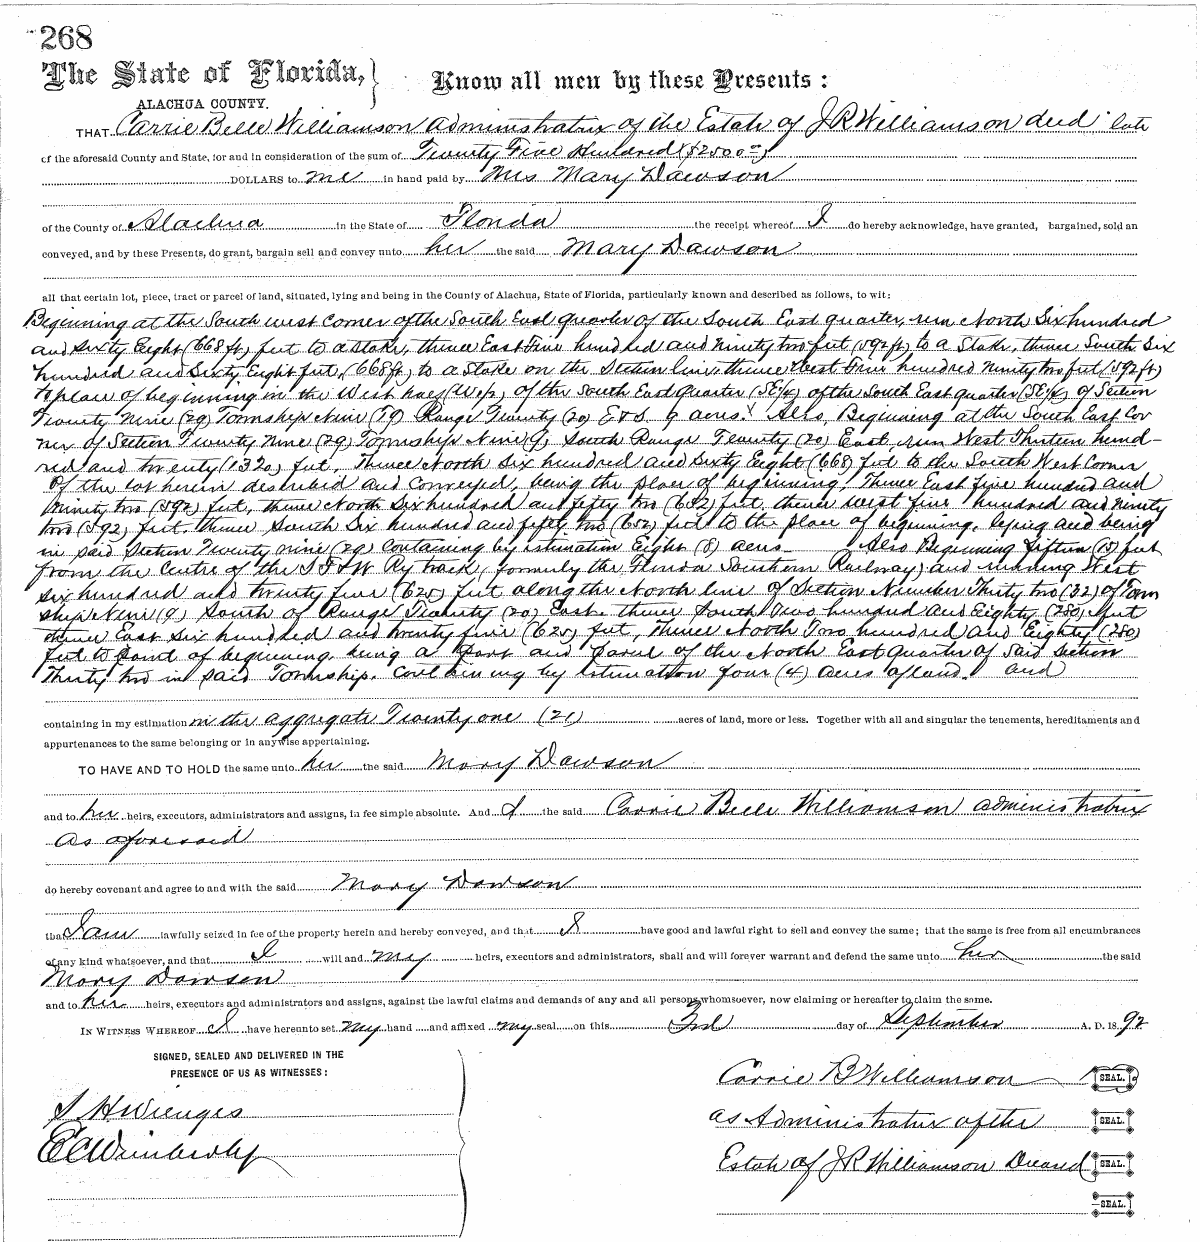 268
The State of Florida,
ALACHUA COUNTY.
Know all men by these Presents:
THAT Carrie Belle Williamson Administratrix of the Estate of J R Williamson decd late
of the aforesaid County and State, for and in consideration of the sum of Twenty Five Hundred ($2500 00)
DOLLARS to me in hand paid by Mrs Mary Dawson
of the County of Alachua in the State of Florida the receipt whereof I do hereby acknowledge, have granted, bargained, sold an
conveyed, and by these Presents, do grant, bargain sell and convey unto her the said Mary Dawson
all that certain lot, piece, tract or parcel of land, situated, lying and being in the County of Alachua, State of Florida, particularly known and described as follows, to wit:
Beginning at the South west Corner of the South East quarter of the South East quarter, run North Six hundred
and Sixty Eight (668 ft) feet to a stake, thence East Five hundred and Ninety two feet (592 ft) to a Stake, thence South Six
hundred and Sixty Eight feet, (668 ft) to a stake on the Section line thence West Five hundred Ninety two feet (592 ft)
to place of beginning in the West half (W½) of the South East Quarter (SE¼) of the South East quarter (SE¼) of Section
Twenty Nine (29) Township Nine (9) Range Twenty (20) E & S. 9 acres. Also, Beginning at the South East Cor
ner of Section Twenty Nine (29) Township Nine 9, South Range Twenty (20) East, run West Thirteen hund-
red and twenty (1320) feet, Thence North Six hundred and Sixty Eight (668) feet to the South West Corner
of the lot herein described and Conveyed, being the place of beginning, Thence East five hundred and
Ninety two (592) feet, thence North Six hundred and fifty two (652) feet, thence west five hundred and Ninety
two (592) feet. thence South Six hundred and fifty two (652) feet to the place of beginning. lying and being
in said Section Twenty nine (29) Containing by estimation Eight (8) acres Also Beginning fifteen (15) feet
from the Centre of the S F & W Ry track, (formerly the Florida Southern Railway) and running West
six hundred and twenty five (625) feet along the North line of Section Number Thirty two (32) of Town
ship Nine (9) South of Range Twenty (20) East. thence South two hundred and Eighty (280) feet
thence East Six hundred and twenty five (625) feet, Thence North Two hundred and Eighty (280)
feet to point of beginning. being a part and parcel of the North East quarter of said Section
Thirty two in said Township. Containing by estimation four (4) acres of land. and
containing in my estimation in the aggregate Twenty one (21) acres of land, more or less. Together with all and singular the tenements, hereditaments and
appurtenances to the same belonging or in anywise appertaining.
TO HAVE AND TO HOLD the same unto her the said Mary Dawson
and to her heirs, executors, administrators and assigns, in fee simple absolute. And I the said Carrie Belle Williamson administratrix
as aforesaid
do hereby covenant and agree to and with the said Mary Dawson
that I am lawfully seized in fee of the property herein and hereby conveyed, and that I have good and lawful right to sell and convey the same; that the same is free from all encumbrances
of any kind whatsoever, and that I will and my heirs, executors and administrators, shall and will forever warrant and defend the same unto her the said
Mary Dawson
and to her heirs, executors and administrators and assigns, against the lawful claims and demands of any and all persons whomsoever, now claiming or hereafter to claim the same.
IN WITNESS WHEREOF I have hereunto set my hand and affixed my seal on this 3rd day of September A. D. 18 92
SIGNED, SEALED AND DELIVERED IN THE
PRESENCE OF US AS WITNESSES:
S H Wienges
E C Wimberly
Carrie B Williamson SEAL.
as Administratrix of the SEAL.
Estate of J R Williamson Deceased SEAL.
SEAL.